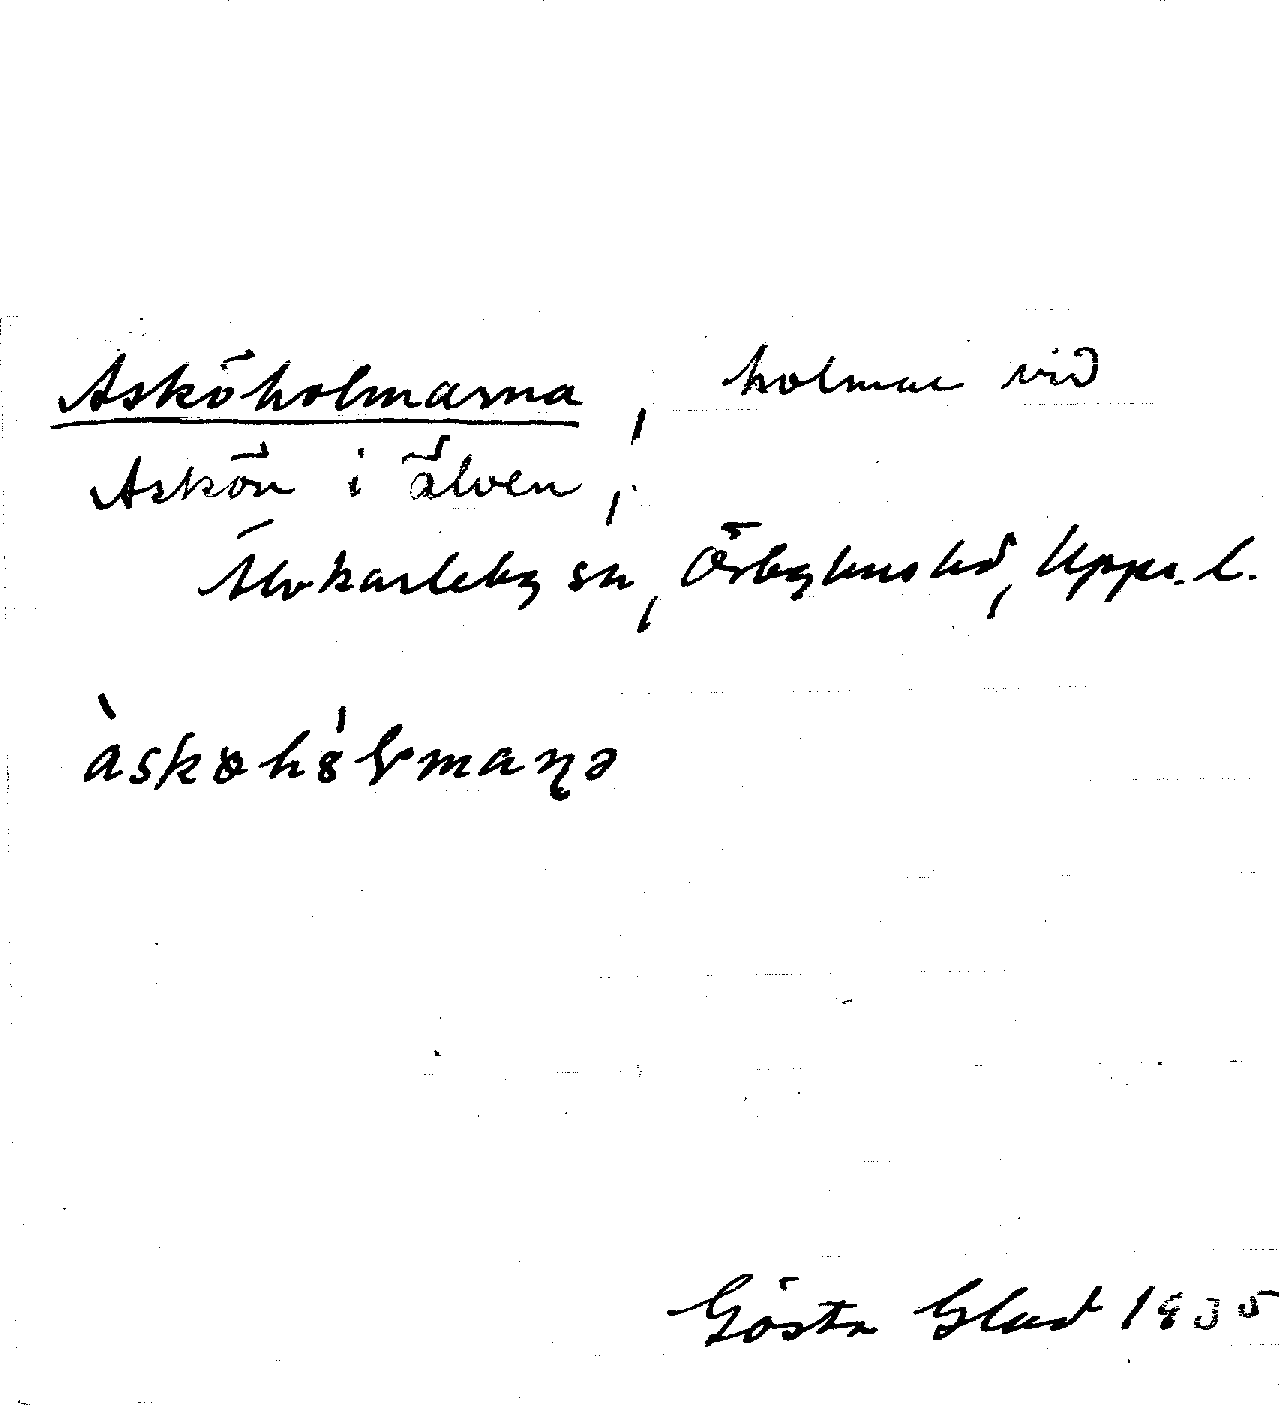 Asköholmarna, holmar vid
Askön i älven,
Älvkarleby sn, Örbyhus hd, Upps. l.
Gösta Glad 1935